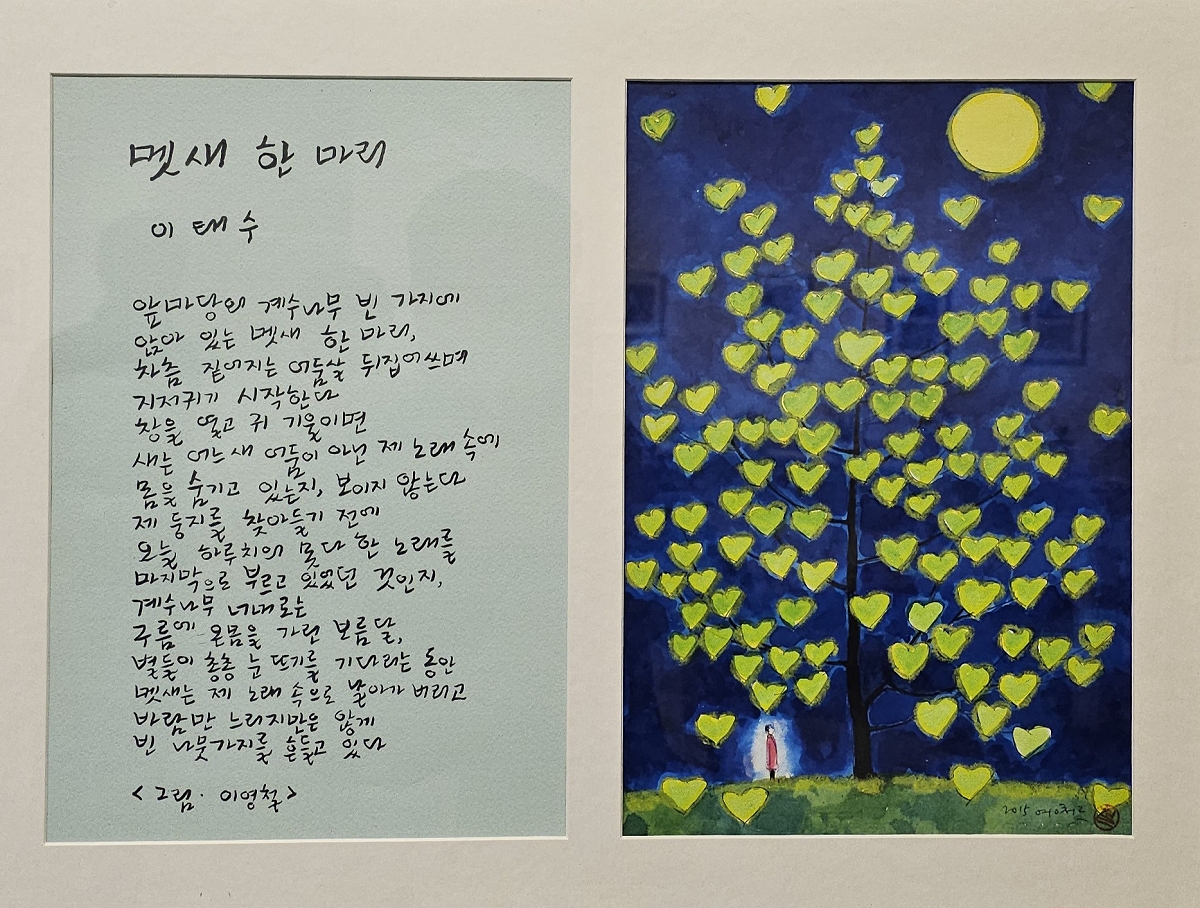 멧새 한 마리
이태수
앞마당의 계수나무 빈 가지에
앉아 있는 멧새 한 마리,
차츰 짙어지는 어둠살 뒤집어쓰며
지저귀기 시작한다
창을 열고 귀 기울이면
새는 어느새 어둠이 아닌 제 노래 속에
몸을 숨기고 있는지, 보이지 않는다
제 둥지를 찾아들기 전에
오늘 하루치의 못다 한 노래를
마지막으로 부르고 있었던 것인지,
계수나무 너머로는
구름에 온몸을 가린 보름달,
별들이 총총 눈 뜨기를 기다리는 동안
멧새는 제 노래 속으로 날아가 버리고
바람만 느리지만은 않게
빈 나뭇가지를 흔들고 있다
<그림· 이영철>
2015 영철